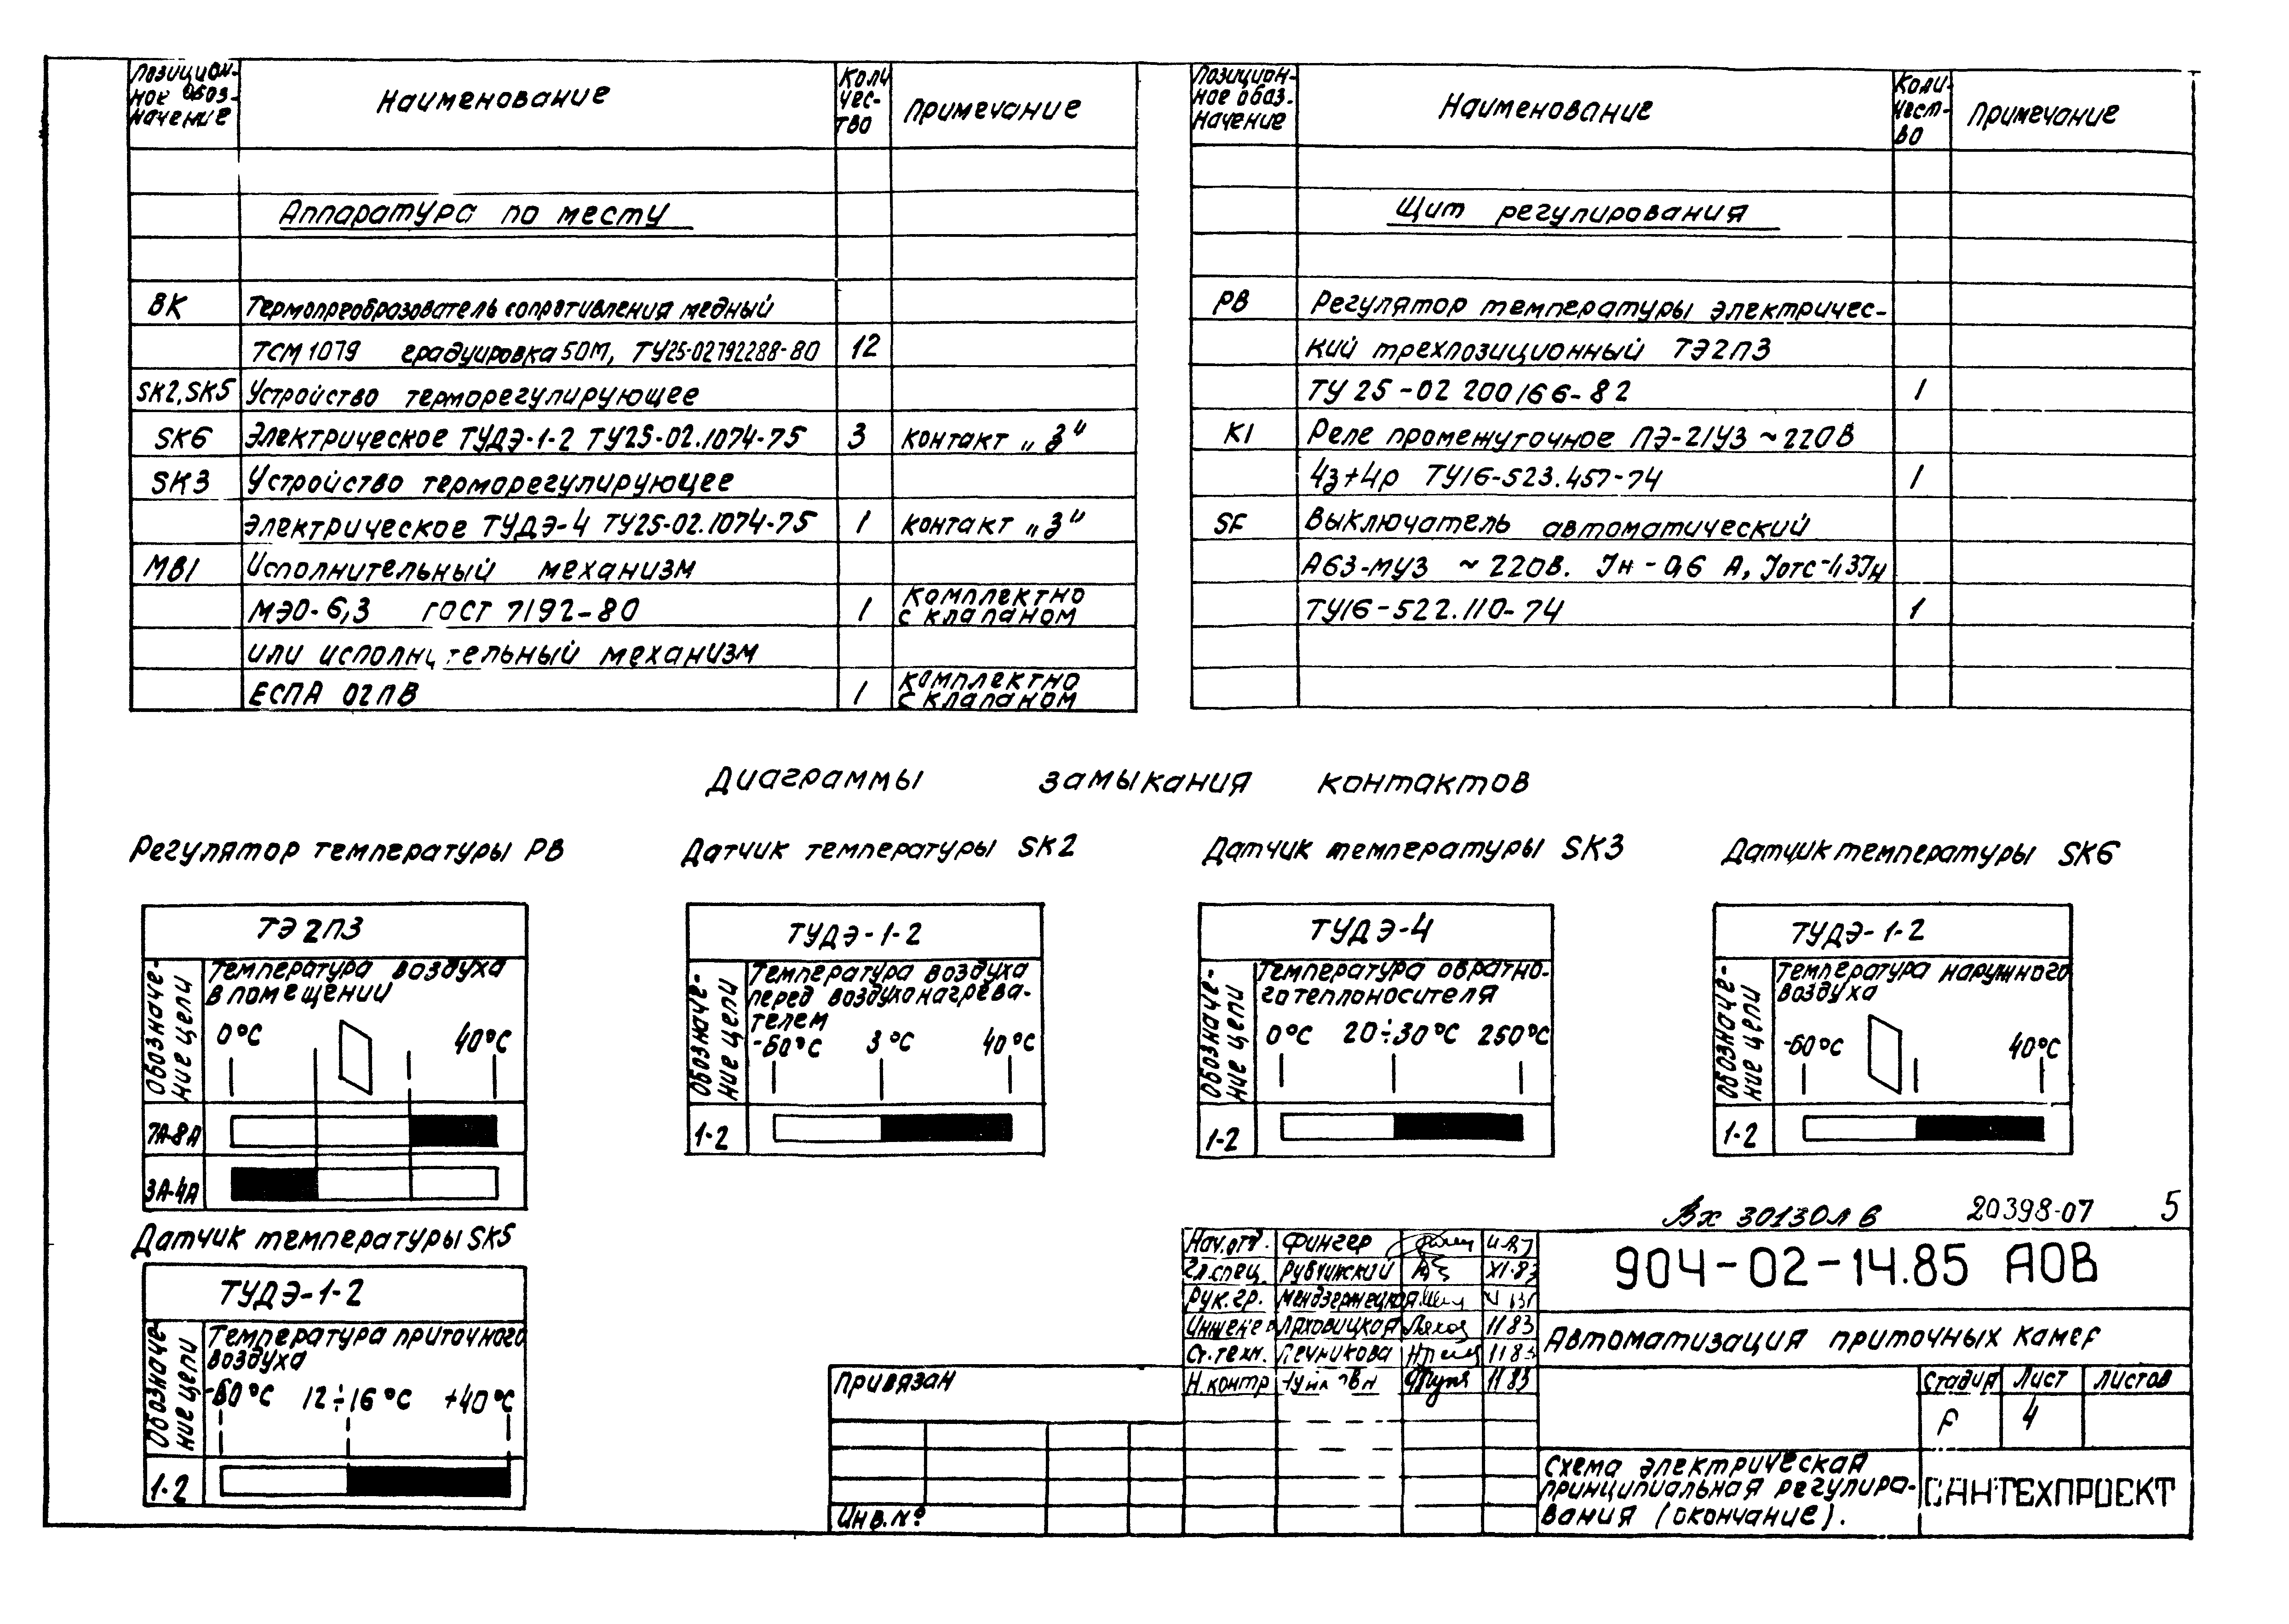 Позицион-
ное обоз-
начение
Наименование
Коли
чес-
тво
Примечание
Аппаратура по месту
ВК Термопреобразователь сопротивления медный
ТСМ 1079 градуировка 50М, ТУ25-02792288-80 12
SK2, SK5 Устройство терморегулирующее
SK6 Электрическое ТУДЭ-1-2 ТУ25-02.1074-75 3 контакт „З"
SK3 Устройство терморегулирующее
Электрическое ТУДЭ-4 ТУ25-02.1074-75 1 контакт „З"
МВ1 Исполнительный механизм
МЭО-6,3 ГОСТ 7192-80 1 комплектно
с клапаном
или исполнительный механизм
ЕСПА 02ПВ 1 комплектно
с клапаном
Позицион-
ное обоз-
начение
Наименование
Коли-
чест-
во
Примечание
Щит регулирования
РВ Регулятор температуры электричес-
кий трехпозиционный ТЭ2П3
ТУ 25-02 200166-82 1
К1 Реле промежуточное ПЭ-21У3 ~220В
4з+4р ТУ16-523.457-74 1
SF Выключатель автоматический
А63-МУ3 ~220В. Iн-0,6 А, Iотс-1,3Iн
ТУ16-522.110-74 1
Диаграммы замыкания контактов
Регулятор температуры РВ
ТЭ2П3
Обозначе-
ние цепи
Температура воздуха
в помещении
0°С 40°С
7А-8А
3А-4А
Датчик температуры SK2
ТУДЭ-1-2
Обозначе-
ние цепи
Температура воздуха
перед воздухонагрева-
телем
-60°С 3°С 40°С
1-2
Датчик температуры SK3
ТУДЭ-4
Обозначе-
ние цепи
Температура обратно-
го теплоносителя
0°С 20÷30°С 250°С
1-2
Датчик температуры SK6
ТУДЭ-1-2
Обозначе-
ние цепи
Температура наружного
воздуха
-60°С 40°С
1-2
Датчик температуры SK5
ТУДЭ-1-2
Обозначе-
ние цепи
Температура приточного
воздуха
-60°С 12÷16°С +40°С
1-2
Вх 30130л6 20398-07 5
Нач.отд. Фингер
Гл.спец. Рубчинский XI.83
Рук.гр. Мендзержецкая
Инженер Ляховицкая 11 83
Ст.техн. Печникова 11 83
Н.контр 11 83
904-02-14.85 АОВ
Автоматизация приточных камер
Стадия Лист Листов
Р 4
Схема электрическая
принципиальная регулиро-
вания (окончание).
САНТЕХПРОЕКТ
Привязан
Инв.№